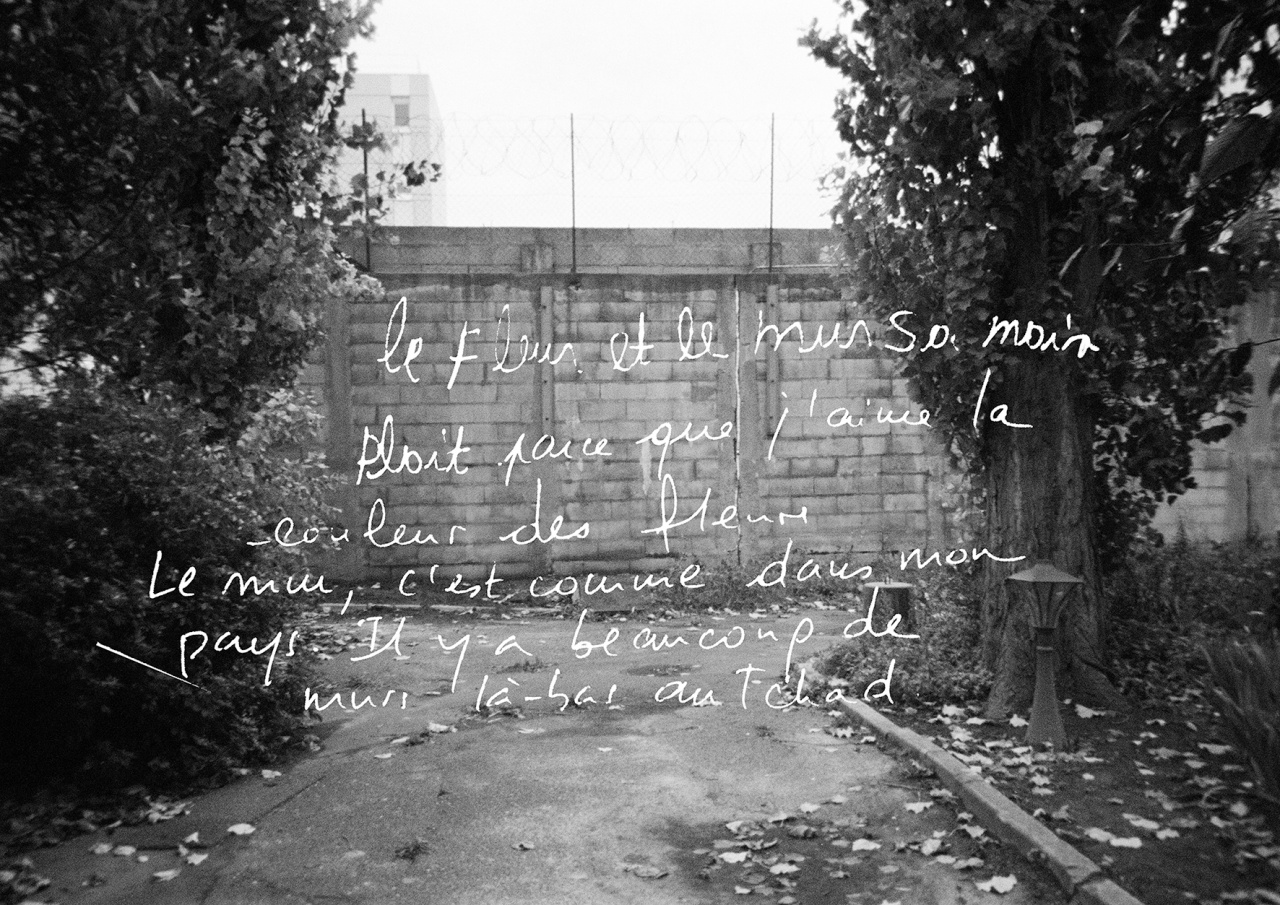 le Fleur et le mur sa moin
Ploit parce que j'aime la
couleur des fleurs
Le mur, c'est comme dans mon
pays Il y a beaucoup de
murs là-bas au Tchad.